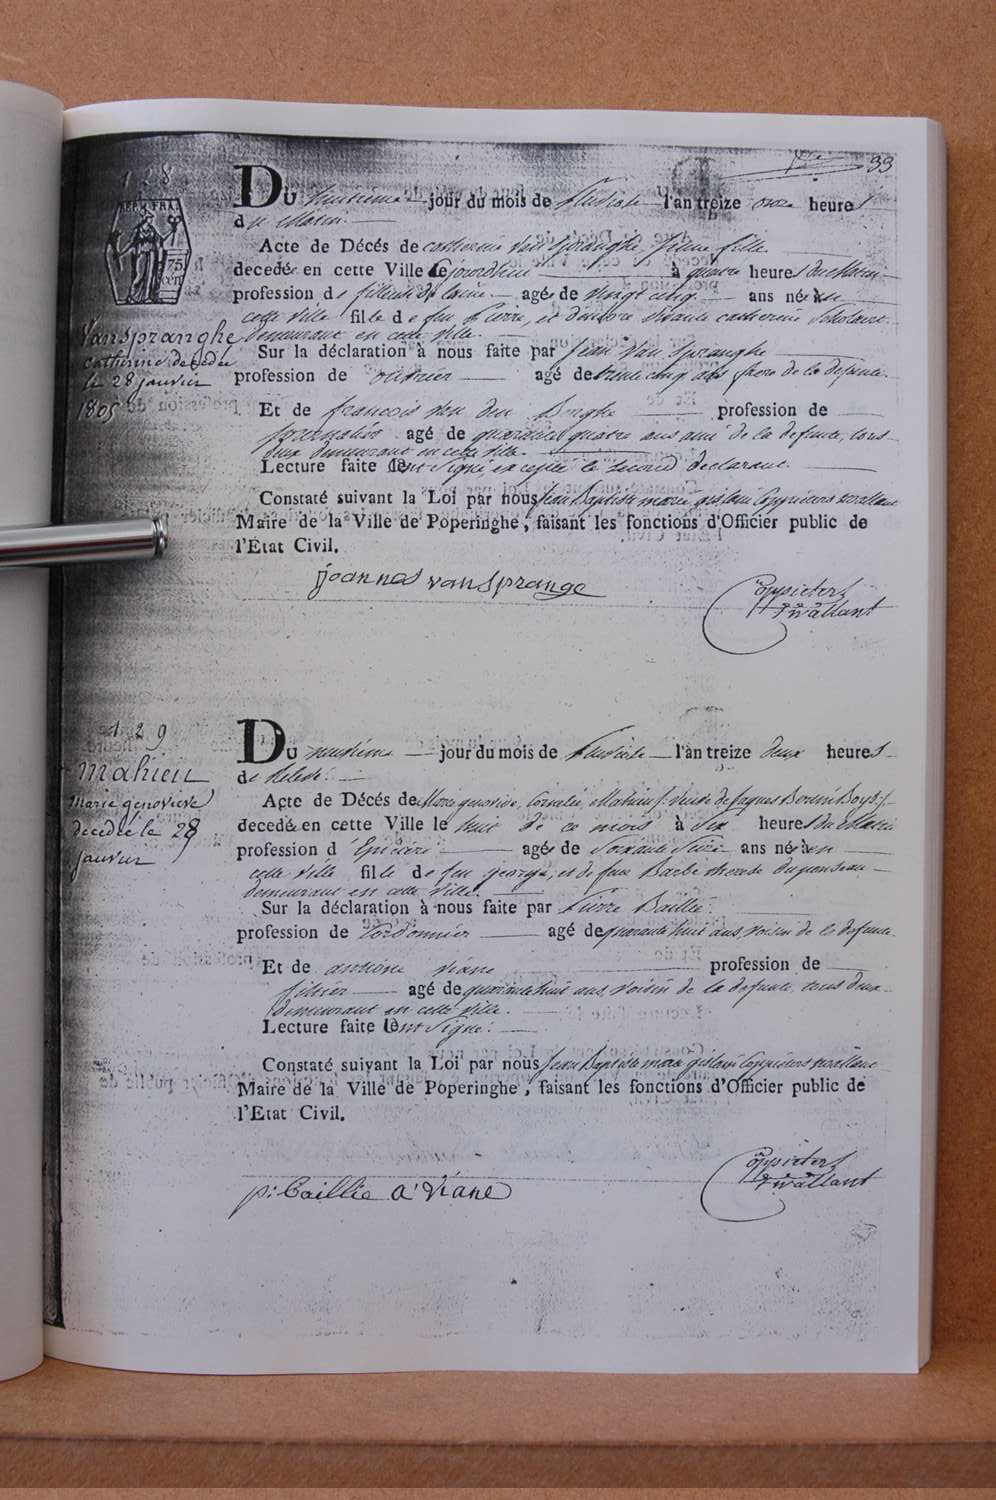 33
128
REP. FRA
75
cen
Du huitieme jour du mois de Pluviose l'an treize onze heures
du Matin.
Acte de Décés de catherine Van Spranghe jeune fille
decedée en cette Ville le jourdhui à quatre heures du Matin
profession de fileuse de laine agée de vingt cinq ans née en
cette ville fille de feu Pierre, et d'encore vivante catherine
demeurant en cette ville.
Vanspranghe
catherine decedée
le 28 janvier
1805
Sur la déclaration à nous faite par Jean Van Spranghe
profession de ouvrier agé de trente cinq ans frere de la defunte.
Et de francois Van den Berghe profession de
journalier agé de quarante quatre ans ami de la defunte, tous
deux demeurant en cette ville.
Lecture faite ont signé, excepté le second declarant.
Constaté suivant la Loi par nous Jean Baptiste marie gislain Coppieters twallant
Maire de la Ville de Poperinghe, faisant les fonctions d'Officier public de
l'Etat Civil.
joannes vansprange
Coppieters
twallant
129
Mahieu
marie genovieve
decédée le 28
janvier
Du neuvieme jour du mois de Pluviose l'an treize deux heures
de Relevée.
Acte de Décés de Marie genovive, Cornelie, Mahieu, veuve de Jaques
decedée en cette Ville le huit de ce mois à Six heures du Matin
profession d'Epiciere agée de Soixante ans née en
cette ville fille de feu george, et de feue Barbe therese
demeurant en cette ville.
Sur la déclaration à nous faite par Pierre Baillie.
profession de Cordonnier agé de quarante huit ans, voisin de la defunte
Et de antoine Viane profession de
agé de quarante huit ans, voisin de la defunte, tous deux
demeurant en cette ville.
Lecture faite ont signé.
Constaté suivant la Loi par nous Jean Baptiste marie gislain Coppieters twallant
Maire de la Ville de Poperinghe, faisant les fonctions d'Officier public de
l'Etat Civil.
p: Baillie A: Viane
Coppieters
twallant